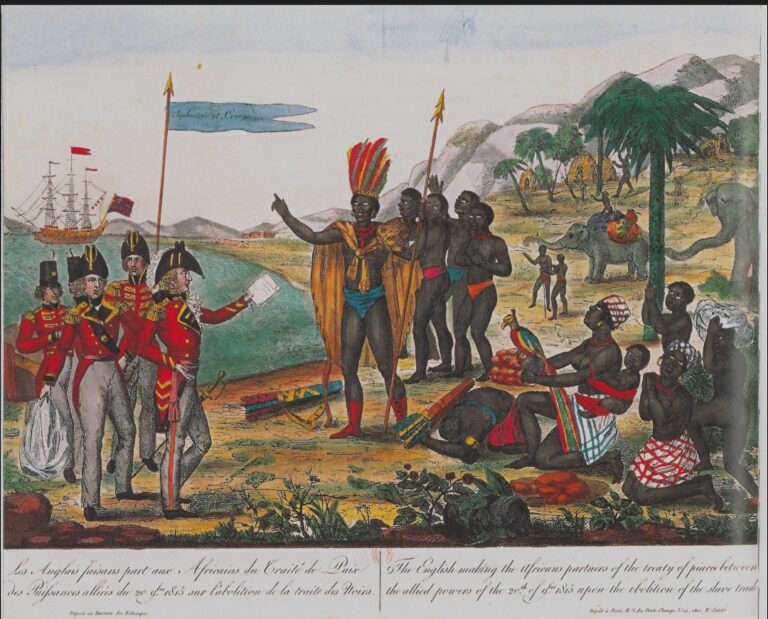 Industrie et Commerce
Les Anglais faisans part aux Africains du Traité de Paix
des Puissances alliées du 20 9.bre 1815 sur l'abolition de la traite des Noirs.
The English making the Africans partners of the treaty of piace between
the allied powers of the 20th of 9.bre 1815 upon the abolition of the slave trade
Déposé au Bureau des Estampes.
Dépôt à Paris, R.